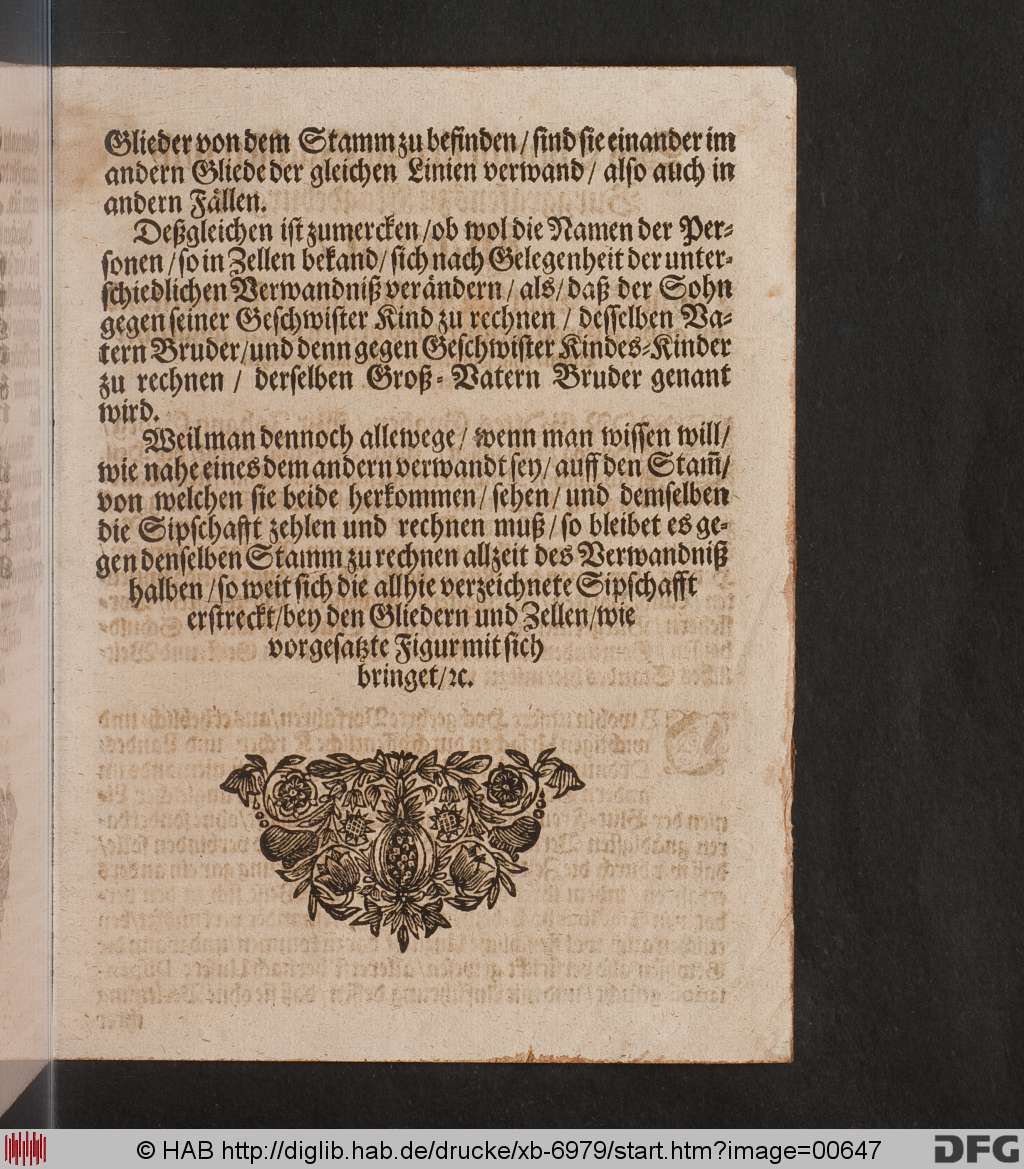 Glieder von dem Stamm zu befinden / sind sie einander im
andern Gliede der gleichen Linien verwand / also auch in
andern Fällen.
Deßgleichen ist zumercken / ob wol die Namen der Per-
sonen / so in Zellen bekand / sich nach Gelegenheit der unter-
schiedlichen Verwandniß verändern / als / daß der Sohn
gegen seiner Geschwister Kind zu rechnen / desselben Va-
tern Bruder / und denn gegen Geschwister Kindes-Kinder
zu rechnen / derselben Groß-Vatern Bruder genant
wird.
Weil man dennoch allewege / wenn man wissen will /
wie nahe eines dem andern verwandt sey / auff den Stam̃ /
von welchen sie beide herkommen / sehen / und demselben
die Sipschafft zehlen und rechnen muß / so bleibet es ge-
gen denselben Stamm zu rechnen allzeit des Verwandniß
halben / so weit sich die allhie verzeichnete Sipschafft
erstreckt / bey den Gliedern und Zellen / wie
vorgesatzte Figur mit sich
bringet / ꝛc.
© HAB http://diglib.hab.de/drucke/xb-6979/start.htm?image=00647
DFG